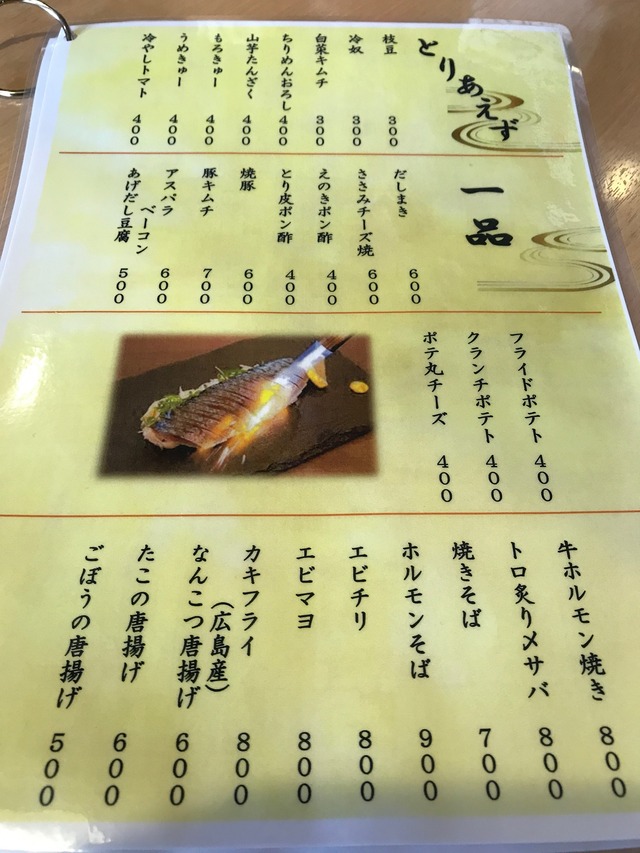 とりあえず
枝豆 300
冷奴 300
白菜キムチ 300
ちりめんおろし 400
山芋たんざく 400
もろきゅー 400
うめきゅー 400
冷やしトマト 400
一品
だしまき 600
ささみチーズ焼 600
えのきポン酢 400
とり皮ポン酢 400
焼豚 600
豚キムチ 700
アスパラベーコン 600
あげだし豆腐 500
フライドポテト 400
クランチポテト 400
ポテ丸チーズ 400
牛ホルモン焼き 800
トロ炙り〆サバ 800
焼きそば 700
ホルモンそば 900
エビチリ 800
エビマヨ 800
カキフライ 800
(広島産)
なんこつ唐揚げ 600
たこの唐揚げ 600
ごぼうの唐揚げ 500